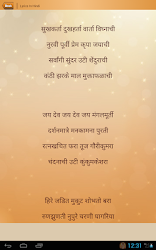 सुखकर्ता दुखहर्ता वार्ता विघ्नाची
नुरवी पुर्वी प्रेम कृपा जयाची
सर्वांगी सुंदर उटी शेंदुराची
कंठी झरके माल मुक्ताफळाची
जय देव जय देव जय मंगलमूर्ती
दर्शनमात्रे मनकामना पुरती
रत्नखचित फरा तुज गौरीकुमरा
चंदनाची उटी कुकुमकेशरा
हिरे जडित मुकुट शोभतो बरा
रुणझुणती नुपुरे चरणी घागरिया
12:31